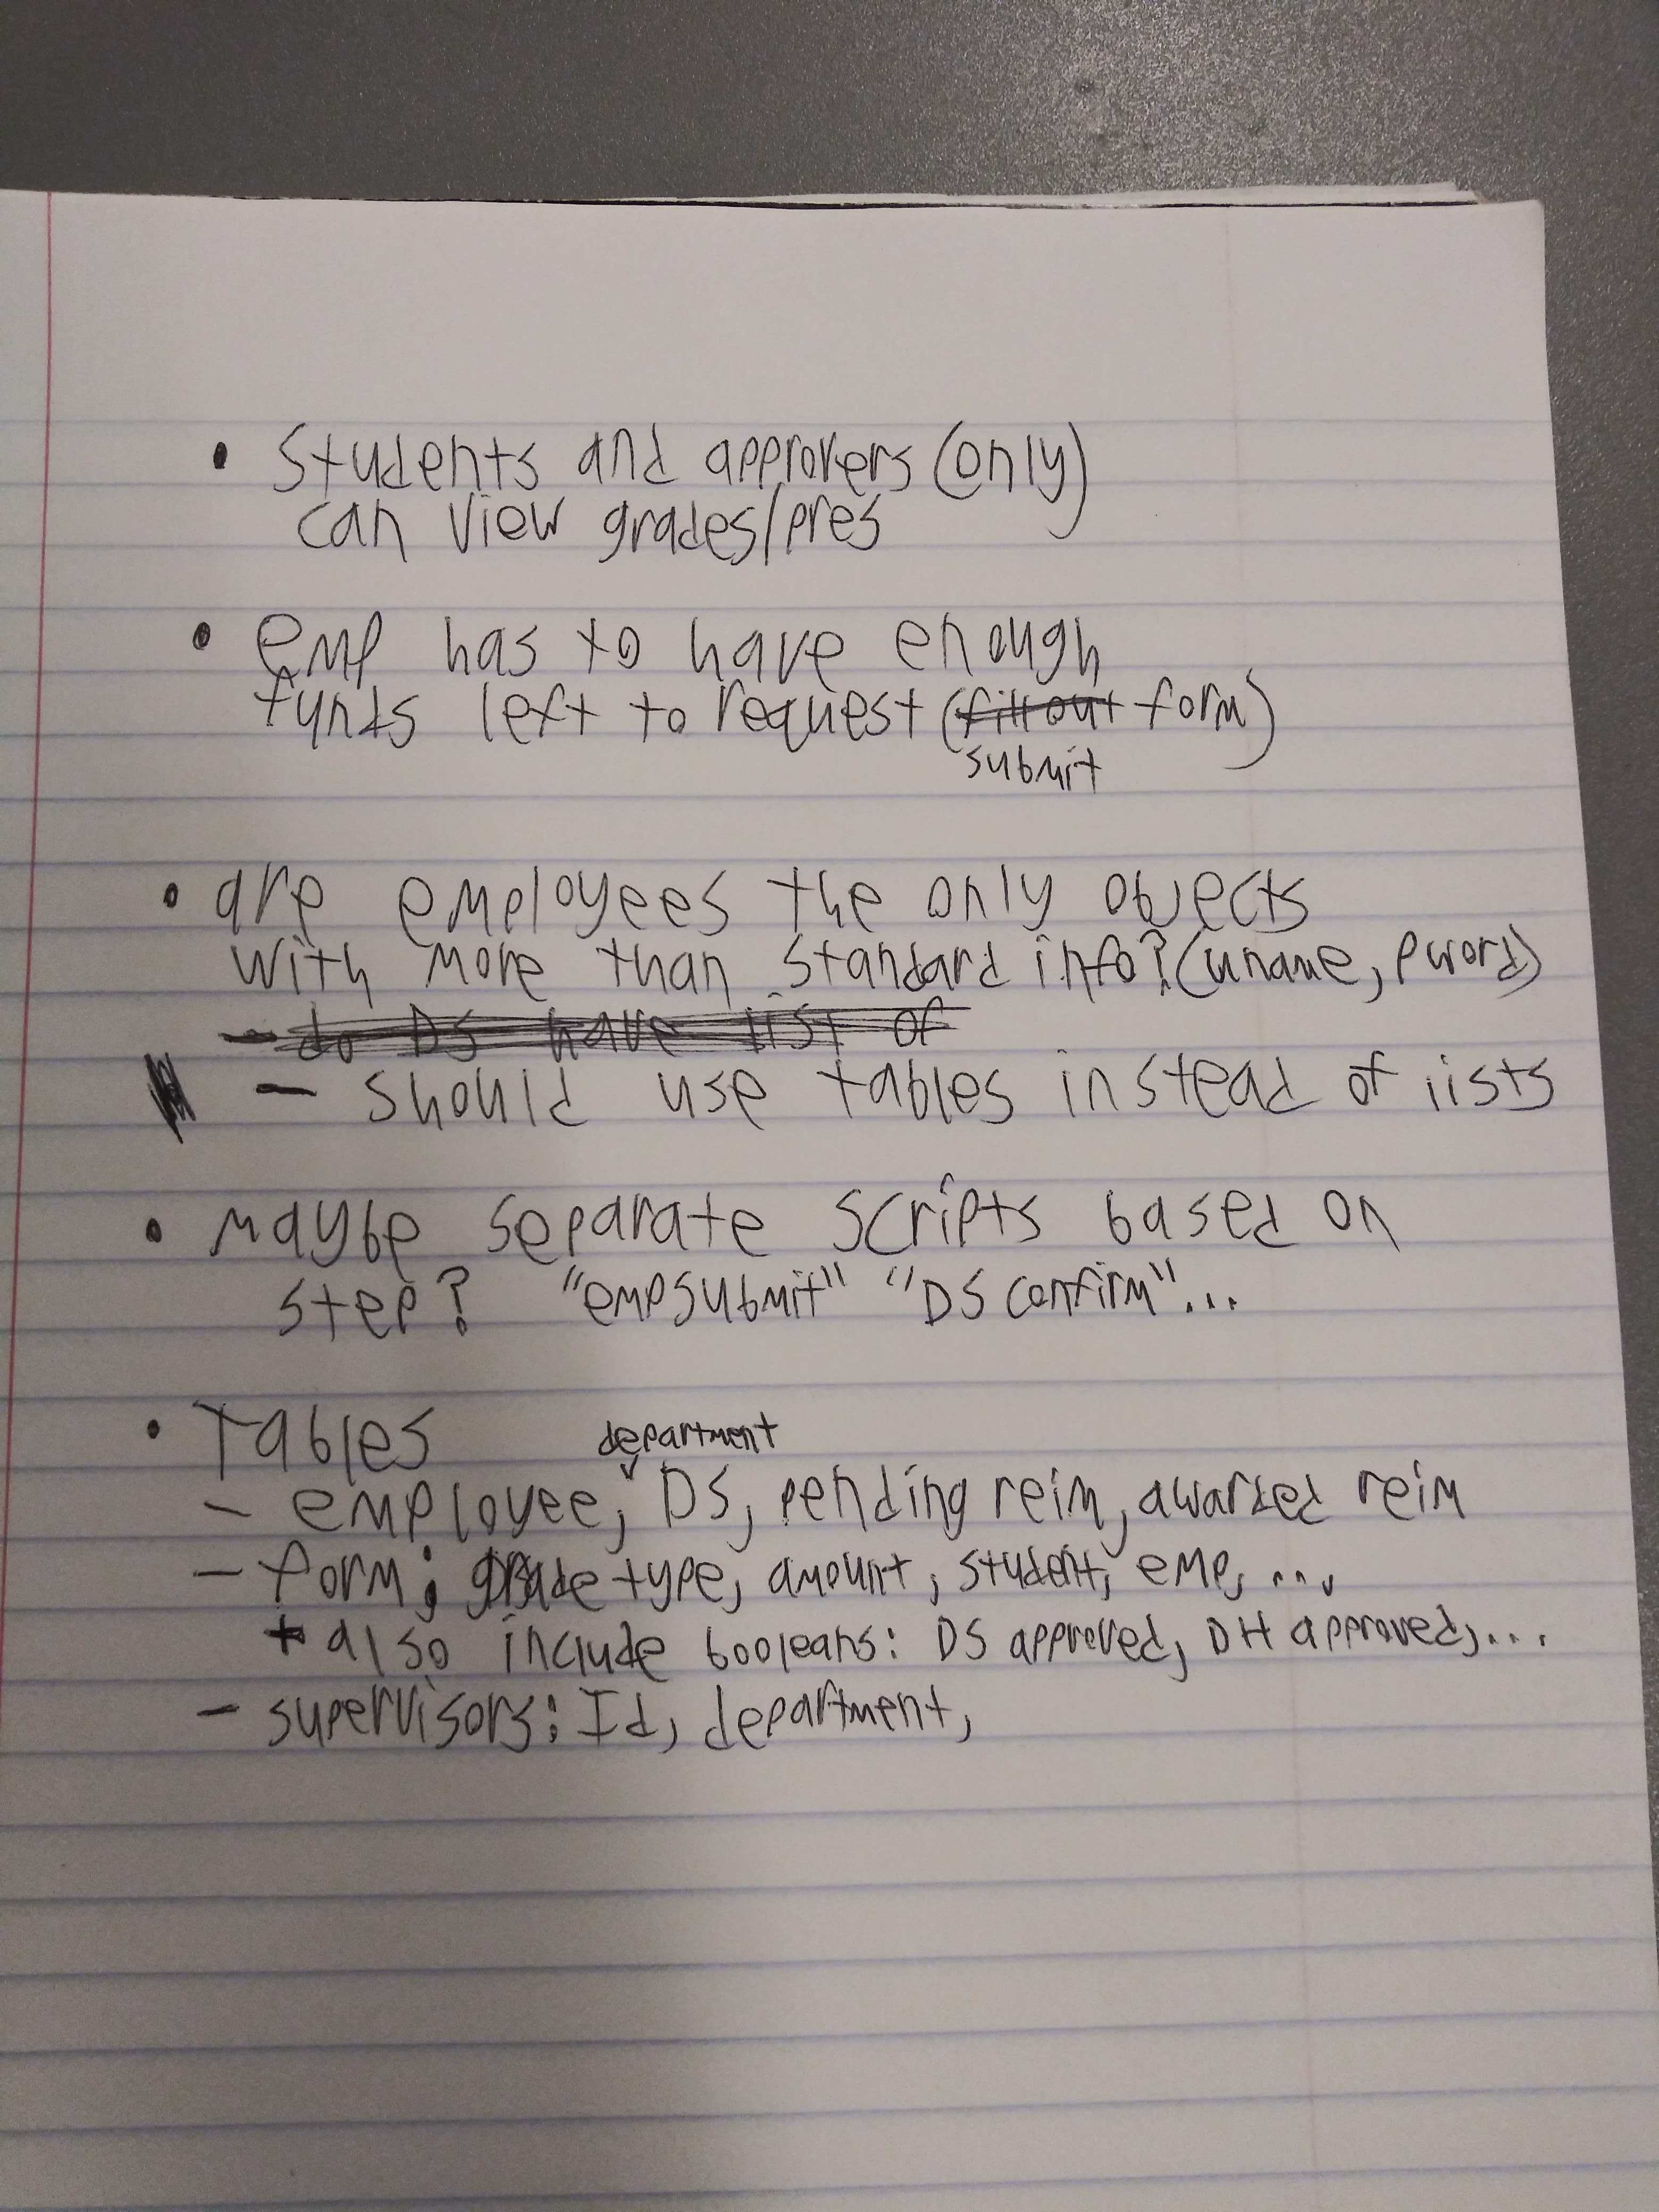 • Students and approvers (only)
can view grades/pres
• emp has to have enough
funds left to request (fill out form)
submit
• are employees the only objects
with more than standard info? (uname, pword)
- do DS have list of
- should use tables instead of lists
• maybe separate scripts based on
step? "empsubmit" "DS confirm"...
• Tables
department
- employee, DS, pending reim, awarded reim
- form: grade type, amount, student, emp, ...,
* also include booleans: DS approved, DH approved, ...
- supervisors: Id, department,